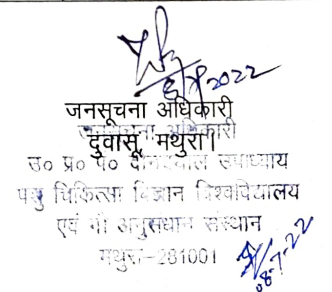 जनसूचना अधिकारी
जनसूचना अधिकारी
दुवासू, मथुरा।
उ० प्र० पं० दीनदयाल उपाध्याय
पशु चिकित्सा विज्ञान विश्वविद्यालय
एवं गौ अनुसंधान संस्थान
मथुरा-281001
08-7-22